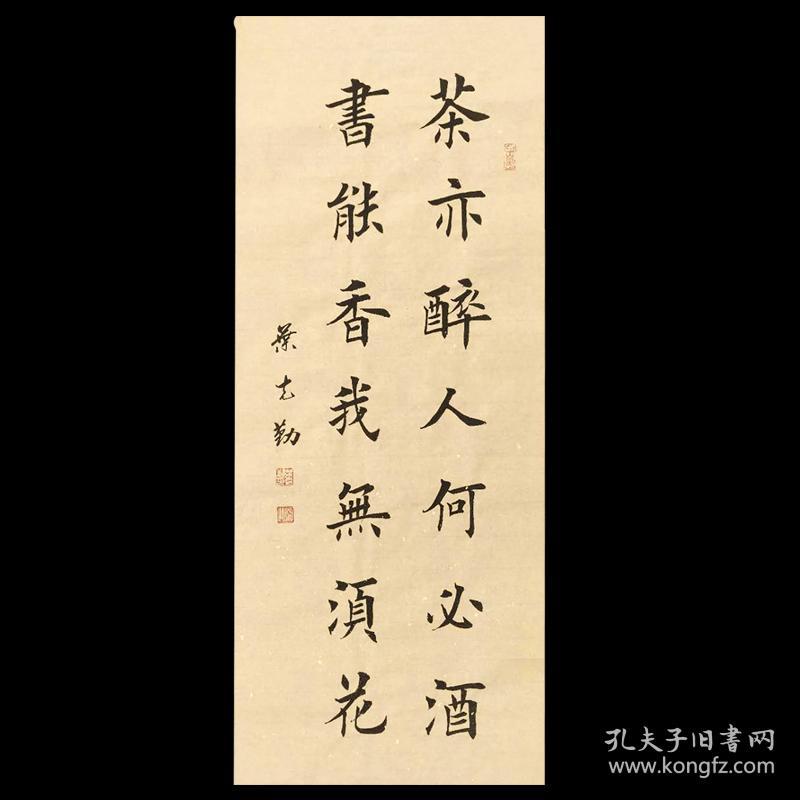 茶亦醉人何必酒
書能香我無湏花
葉克勤
孔夫子旧書网
www.kongfz.com